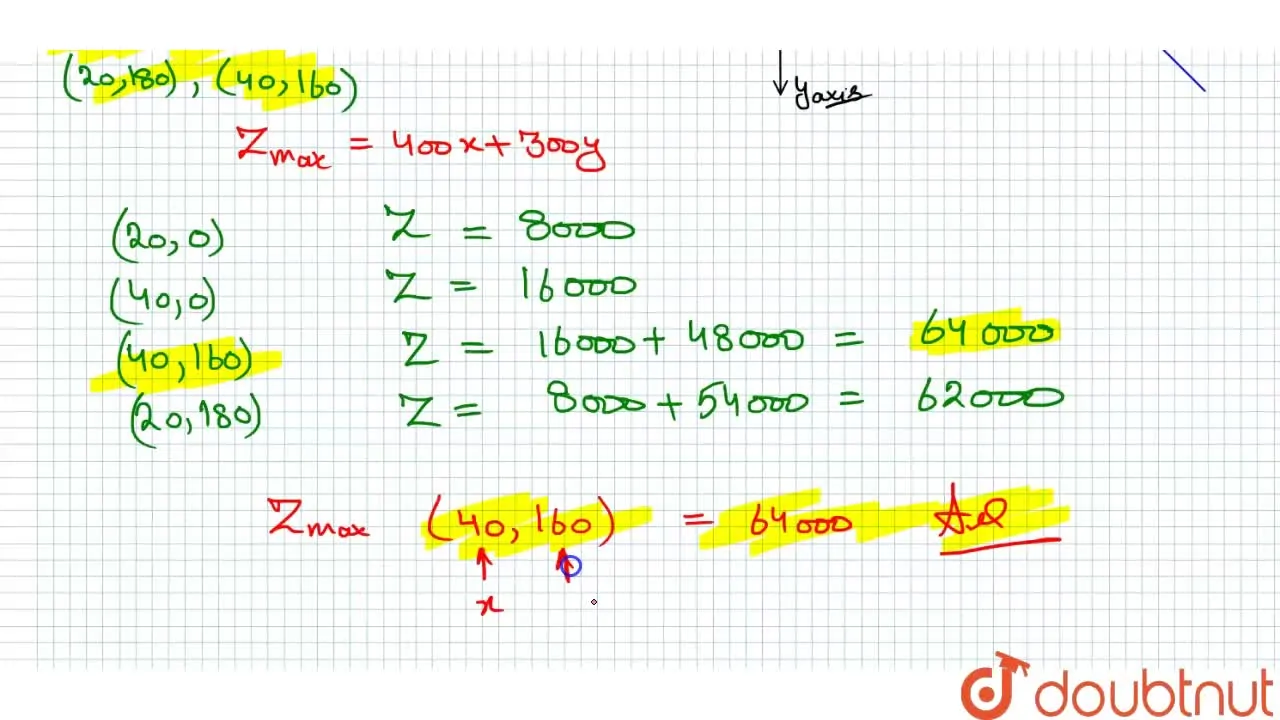 (20,180), (40,160)
y axis
Zmax = 400x+300y
(20,0) Z = 8000
(40,0) Z = 16000
(40,160) Z = 16000+48000 = 64000
(20,180) Z = 8000+54000 = 62000
Zmax (40,160) = 64000
x
doubtnut